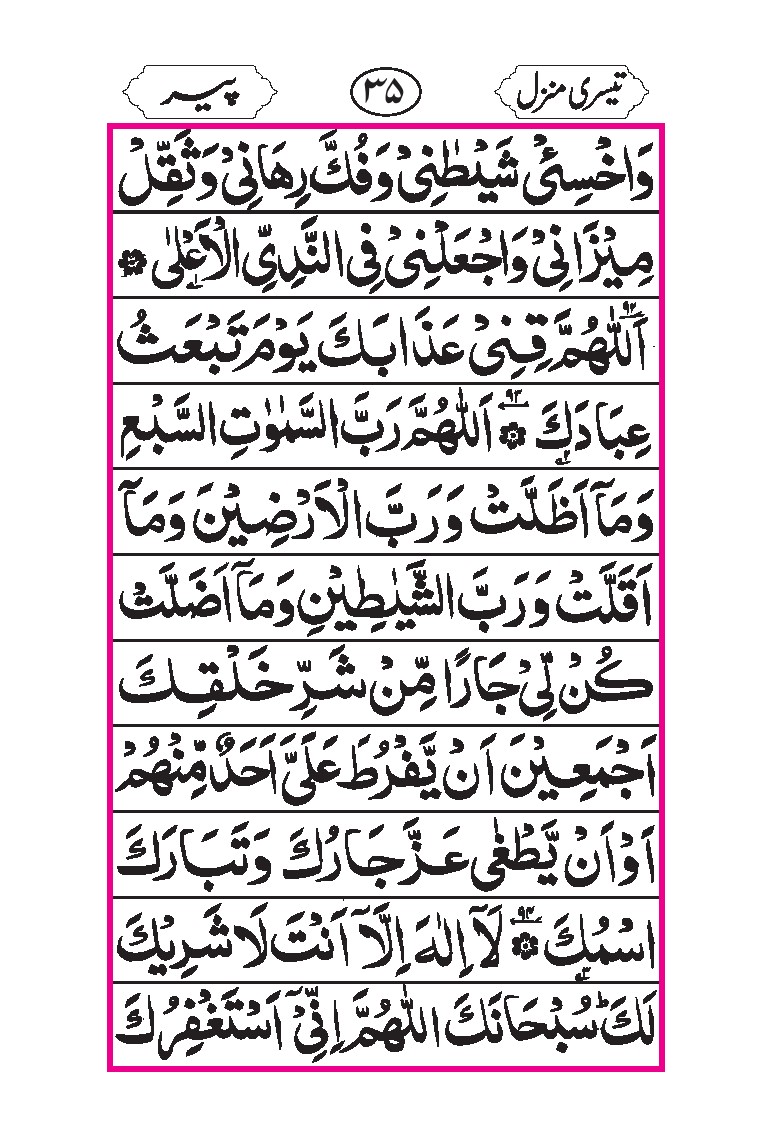 تیسری منزل ۳۵ پیر
وَاخْسِئْ شَيْطٰنِيْ وَفُكَّ رِهَانِيْ وَثَقِّلْ
مِيْزَانِيْ وَاجْعَلْنِيْ فِي النَّدِيِّ الْاَعْلٰى
۹۲ اَللّٰهُمَّ قِنِيْ عَذَابَكَ يَوْمَ تَبْعَثُ
عِبَادَكَ ۹۳ اَللّٰهُمَّ رَبَّ السَّمٰوٰتِ السَّبْعِ
وَمَآ اَظَلَّتْ وَرَبَّ الْاَرْضِيْنَ وَمَآ
اَقَلَّتْ وَرَبَّ الشَّيٰطِيْنِ وَمَآ اَضَلَّتْ
كُنْ لِّيْ جَارًا مِّنْ شَرِّ خَلْقِكَ
اَجْمَعِيْنَ اَنْ يَّفْرُطَ عَلَيَّ اَحَدٌ مِّنْهُمْ
اَوْ اَنْ يَّطْغٰى عَزَّ جَارُكَ وَتَبَارَكَ
اسْمُكَ ۹۴ لَآ اِلٰهَ اِلَّآ اَنْتَ لَا شَرِيْكَ
لَكَ ؕ سُبْحَانَكَ اللّٰهُمَّ اِنِّيْٓ اَسْتَغْفِرُكَ